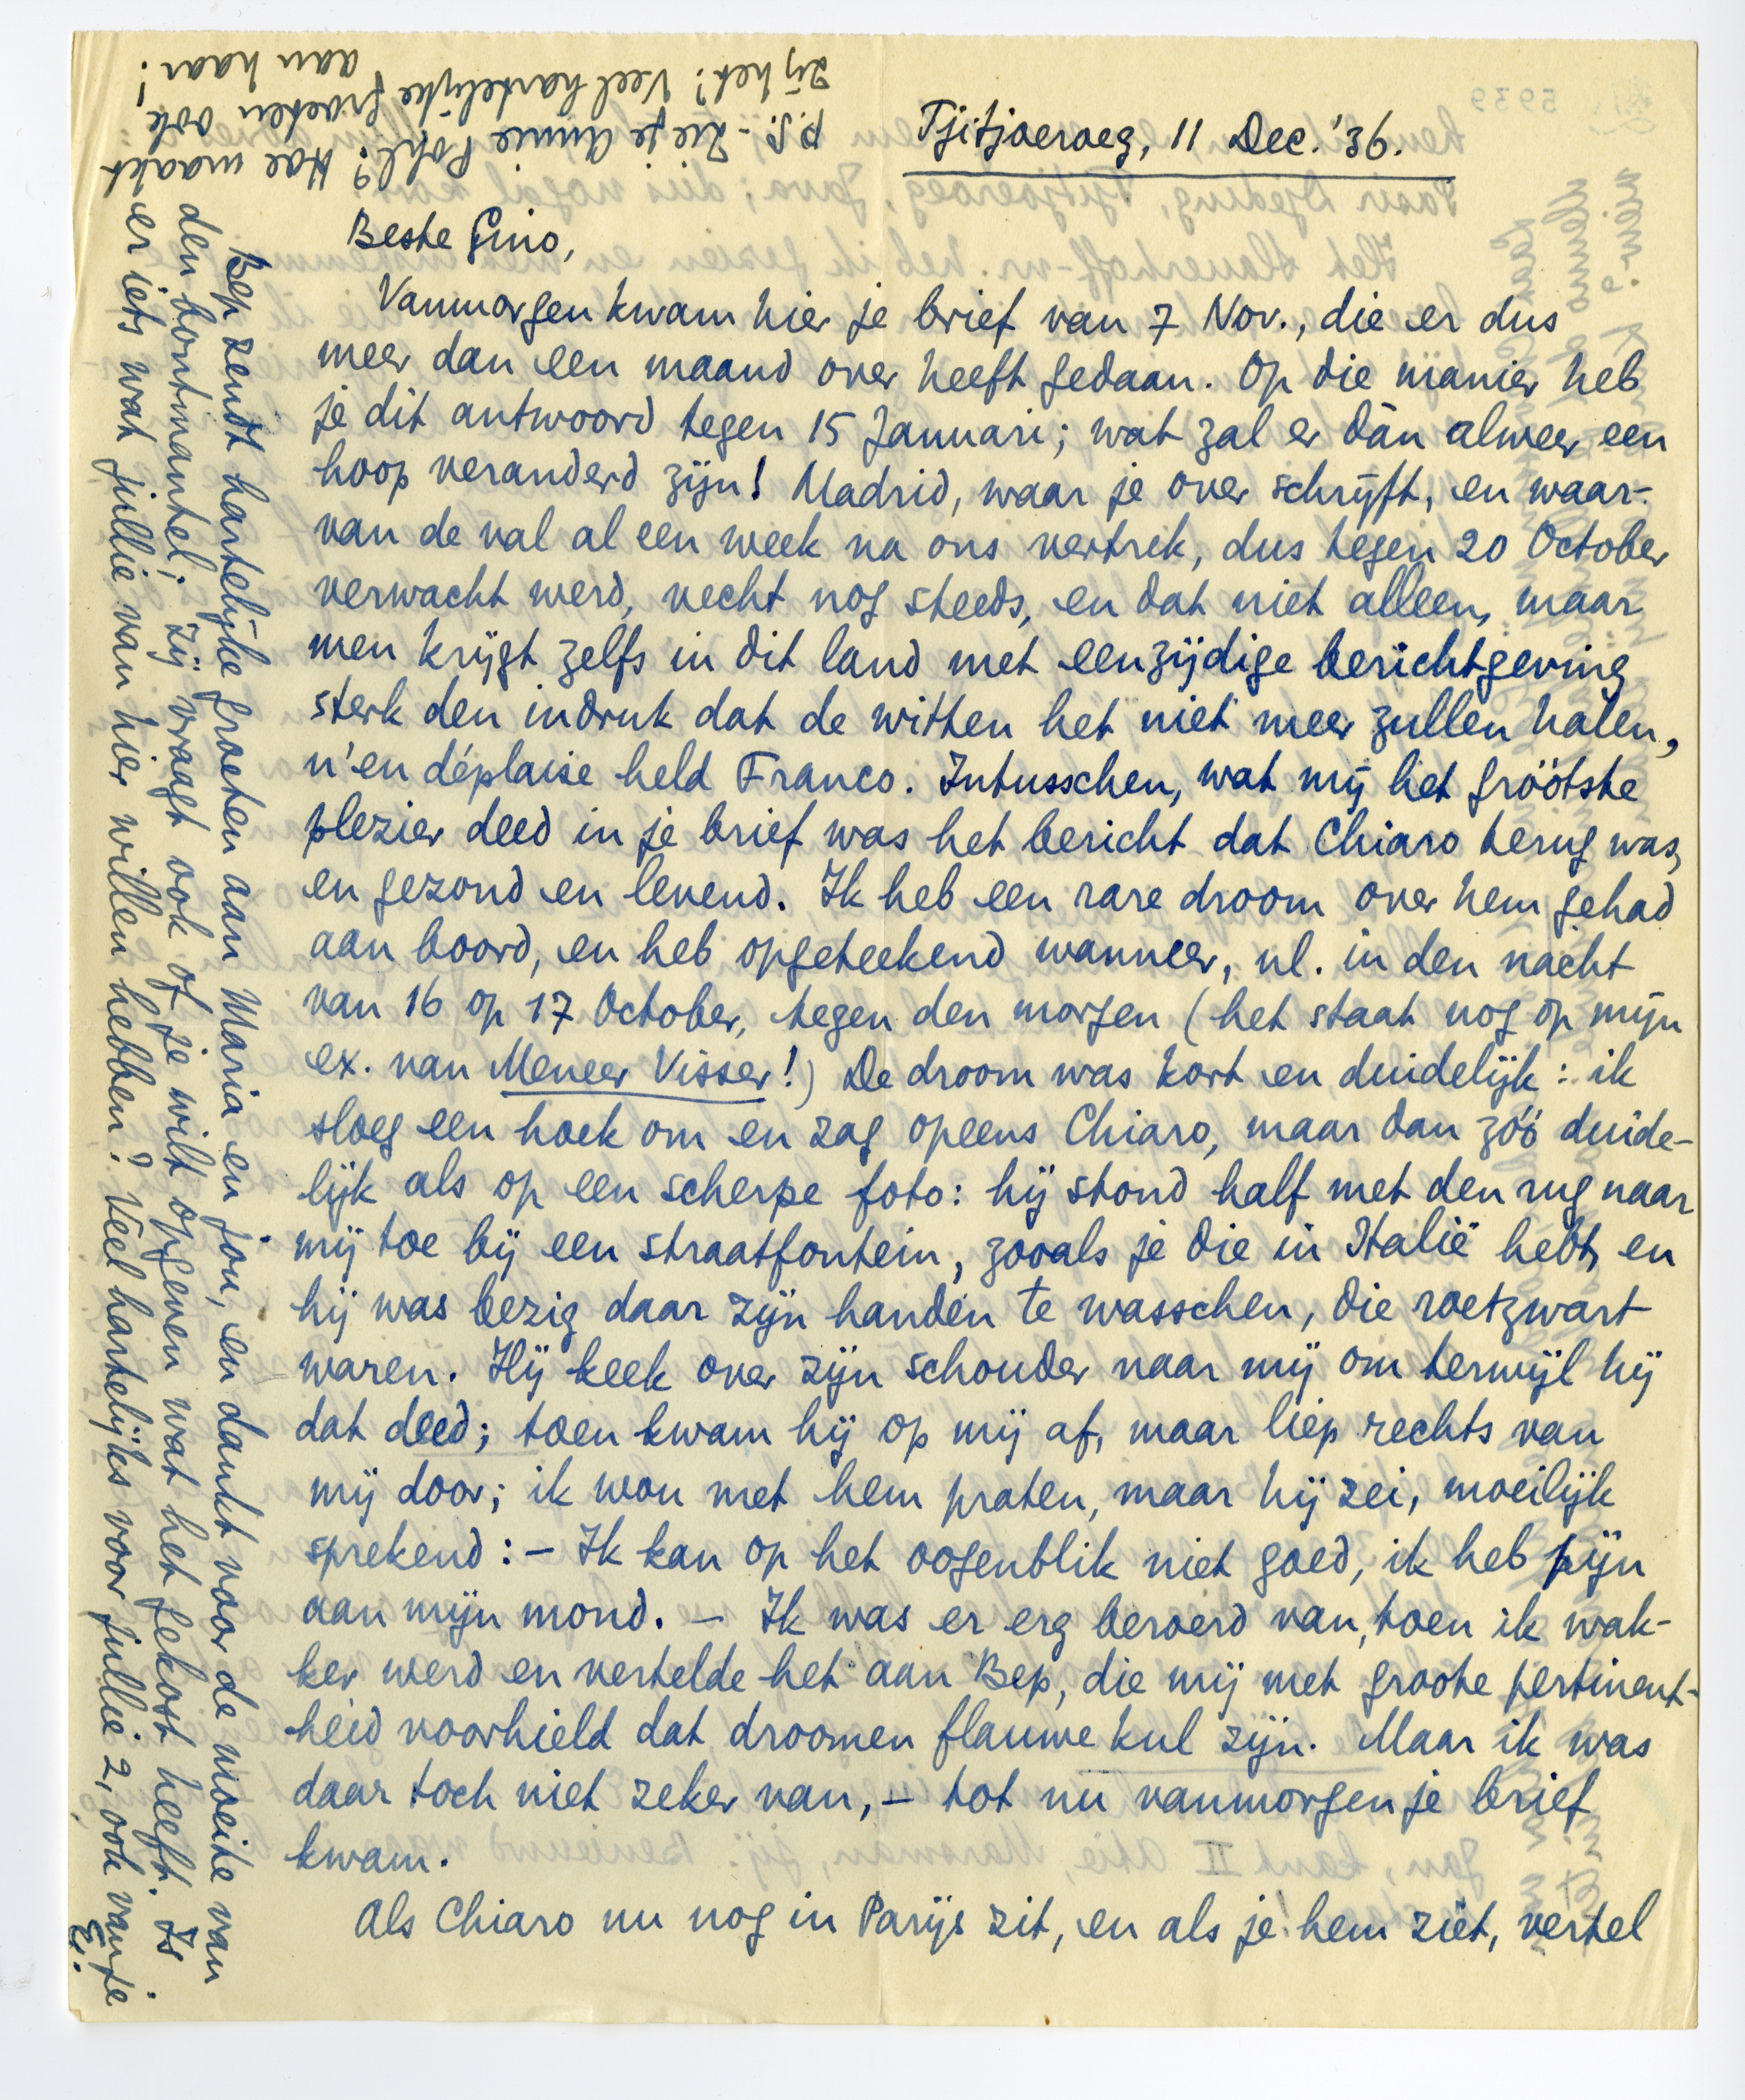 Tjitjoeroeg, 11 Dec. '36.
Beste Gino,
Vanmorgen kwam hier je brief van 7 Nov., die er dus
meer dan een maand over heeft gedaan. Op die manier heb
je dit antwoord tegen 15 Januari; wat zal er dàn alweer een
hoop veranderd zijn! Madrid, waar je over schrijft, en waar-
van de val al een week na ons vertrek, dus tegen 20 October
verwacht werd, vecht nog steeds, en dat niet alleen, maar
men krijgt zelfs in dit land met eenzijdige berichtgeving
sterk den indruk dat de witten het niet meer zullen halen,
n'en déplaise held Franco. Intusschen, wat mij het gróótste
plezier deed in je brief was het bericht dat Chiaro terug was,
en gezond en levend. Ik heb een rare droom over hem gehad
aan boord, en heb opgeteekend wanneer, nl. in den nacht
van 16 op 17 October, tegen den morgen (het staat nog op mijn
ex. van Meneer Visser!) De droom was kort en duidelijk: ik
sloeg een hoek om en zag opeens Chiaro, maar dan zóó duide-
lijk als op een scherpe foto: hij stond half met den rug naar
mij toe bij een straatfontein, zooals je die in Italië hebt, en
hij was bezig daar zijn handen te wasschen, die roetzwart
waren. Hij keek over zijn schouder naar mij om terwijl hij
dat deed; toen kwam hij op mij af, maar liep rechts van
mij door; ik wou met hem praten, maar hij zei, moeilijk
sprekend: – Ik kan op het oogenblik niet goed, ik heb pijn
aan mijn mond. – Ik was er erg beroerd van, toen ik wak-
ker werd en vertelde het aan Bep, die mij met groote pertinent-
heid voorhield dat droomen flauwe kul zijn. Maar ik was
daar toch niet zeker van, – tot nu vanmorgen je brief
kwam.
Als Chiaro nu nog in Parijs zit, en als je hem ziet, vertel
Bep zendt hartelijke groeten aan Maria en jou, en dankt voor de moeite van
den bontmantel; zij vraagt ook of je wilt opgeven wat het gekost heeft. Is
er iets wat jullie van hier willen hebben? Veel hartelijks voor jullie 2, ook van je
E.
P.S. - Zie je Annie Pohl? Hoe maakt
zij het? Veel hartelijke groeten ook
aan haar!